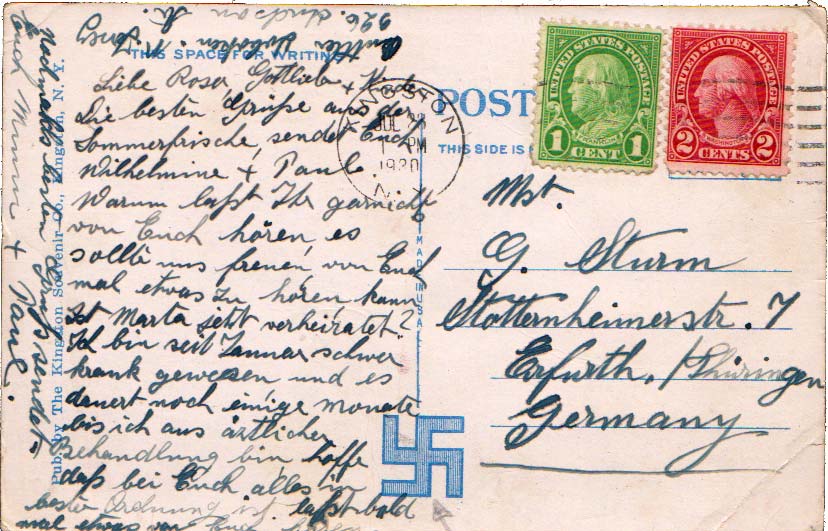 926. Hudson St.
Hoboken N. Jersey
THIS SPACE FOR WRITING
Liebe Rosa, Gottlieb + Kinder
Die besten Grüße aus der
Sommerfrische, sendet Euch
Wilhelmine + Paul.
Warum laßt Ihr garnicht
von Euch hören, es
sollte uns freuen, von Euch
mal etwas zu hören, kann
Ist Marta jetzt verheiratet?
Ich bin seit Januar schwer
krank geweesen und es
dauert noch einige Monate
bis ich aus ärtlicher
Behandlung bin, hoffe
daß bei Euch alles in
bester Ordnung ist. laßt bald
mal etwas von Euch hören
Nochmals besten Gruß sendet
Euch Minna + Paul.
Pub. by The Kingston Souvenir Co., Kingston, N. Y.
MADE IN U.S.A.
KINGSTON
JUL 28
PM
1930
N. Y.
POST
THIS SIDE IS
UNITED STATES POSTAGE
FRANKLIN
1 CENT 1
UNITED STATES POSTAGE
WASHINGTON
2 CENTS 2
Mst.
G. Sturm
Stotternheimerstr. 7
Erfurth, /Thüringen
Germany